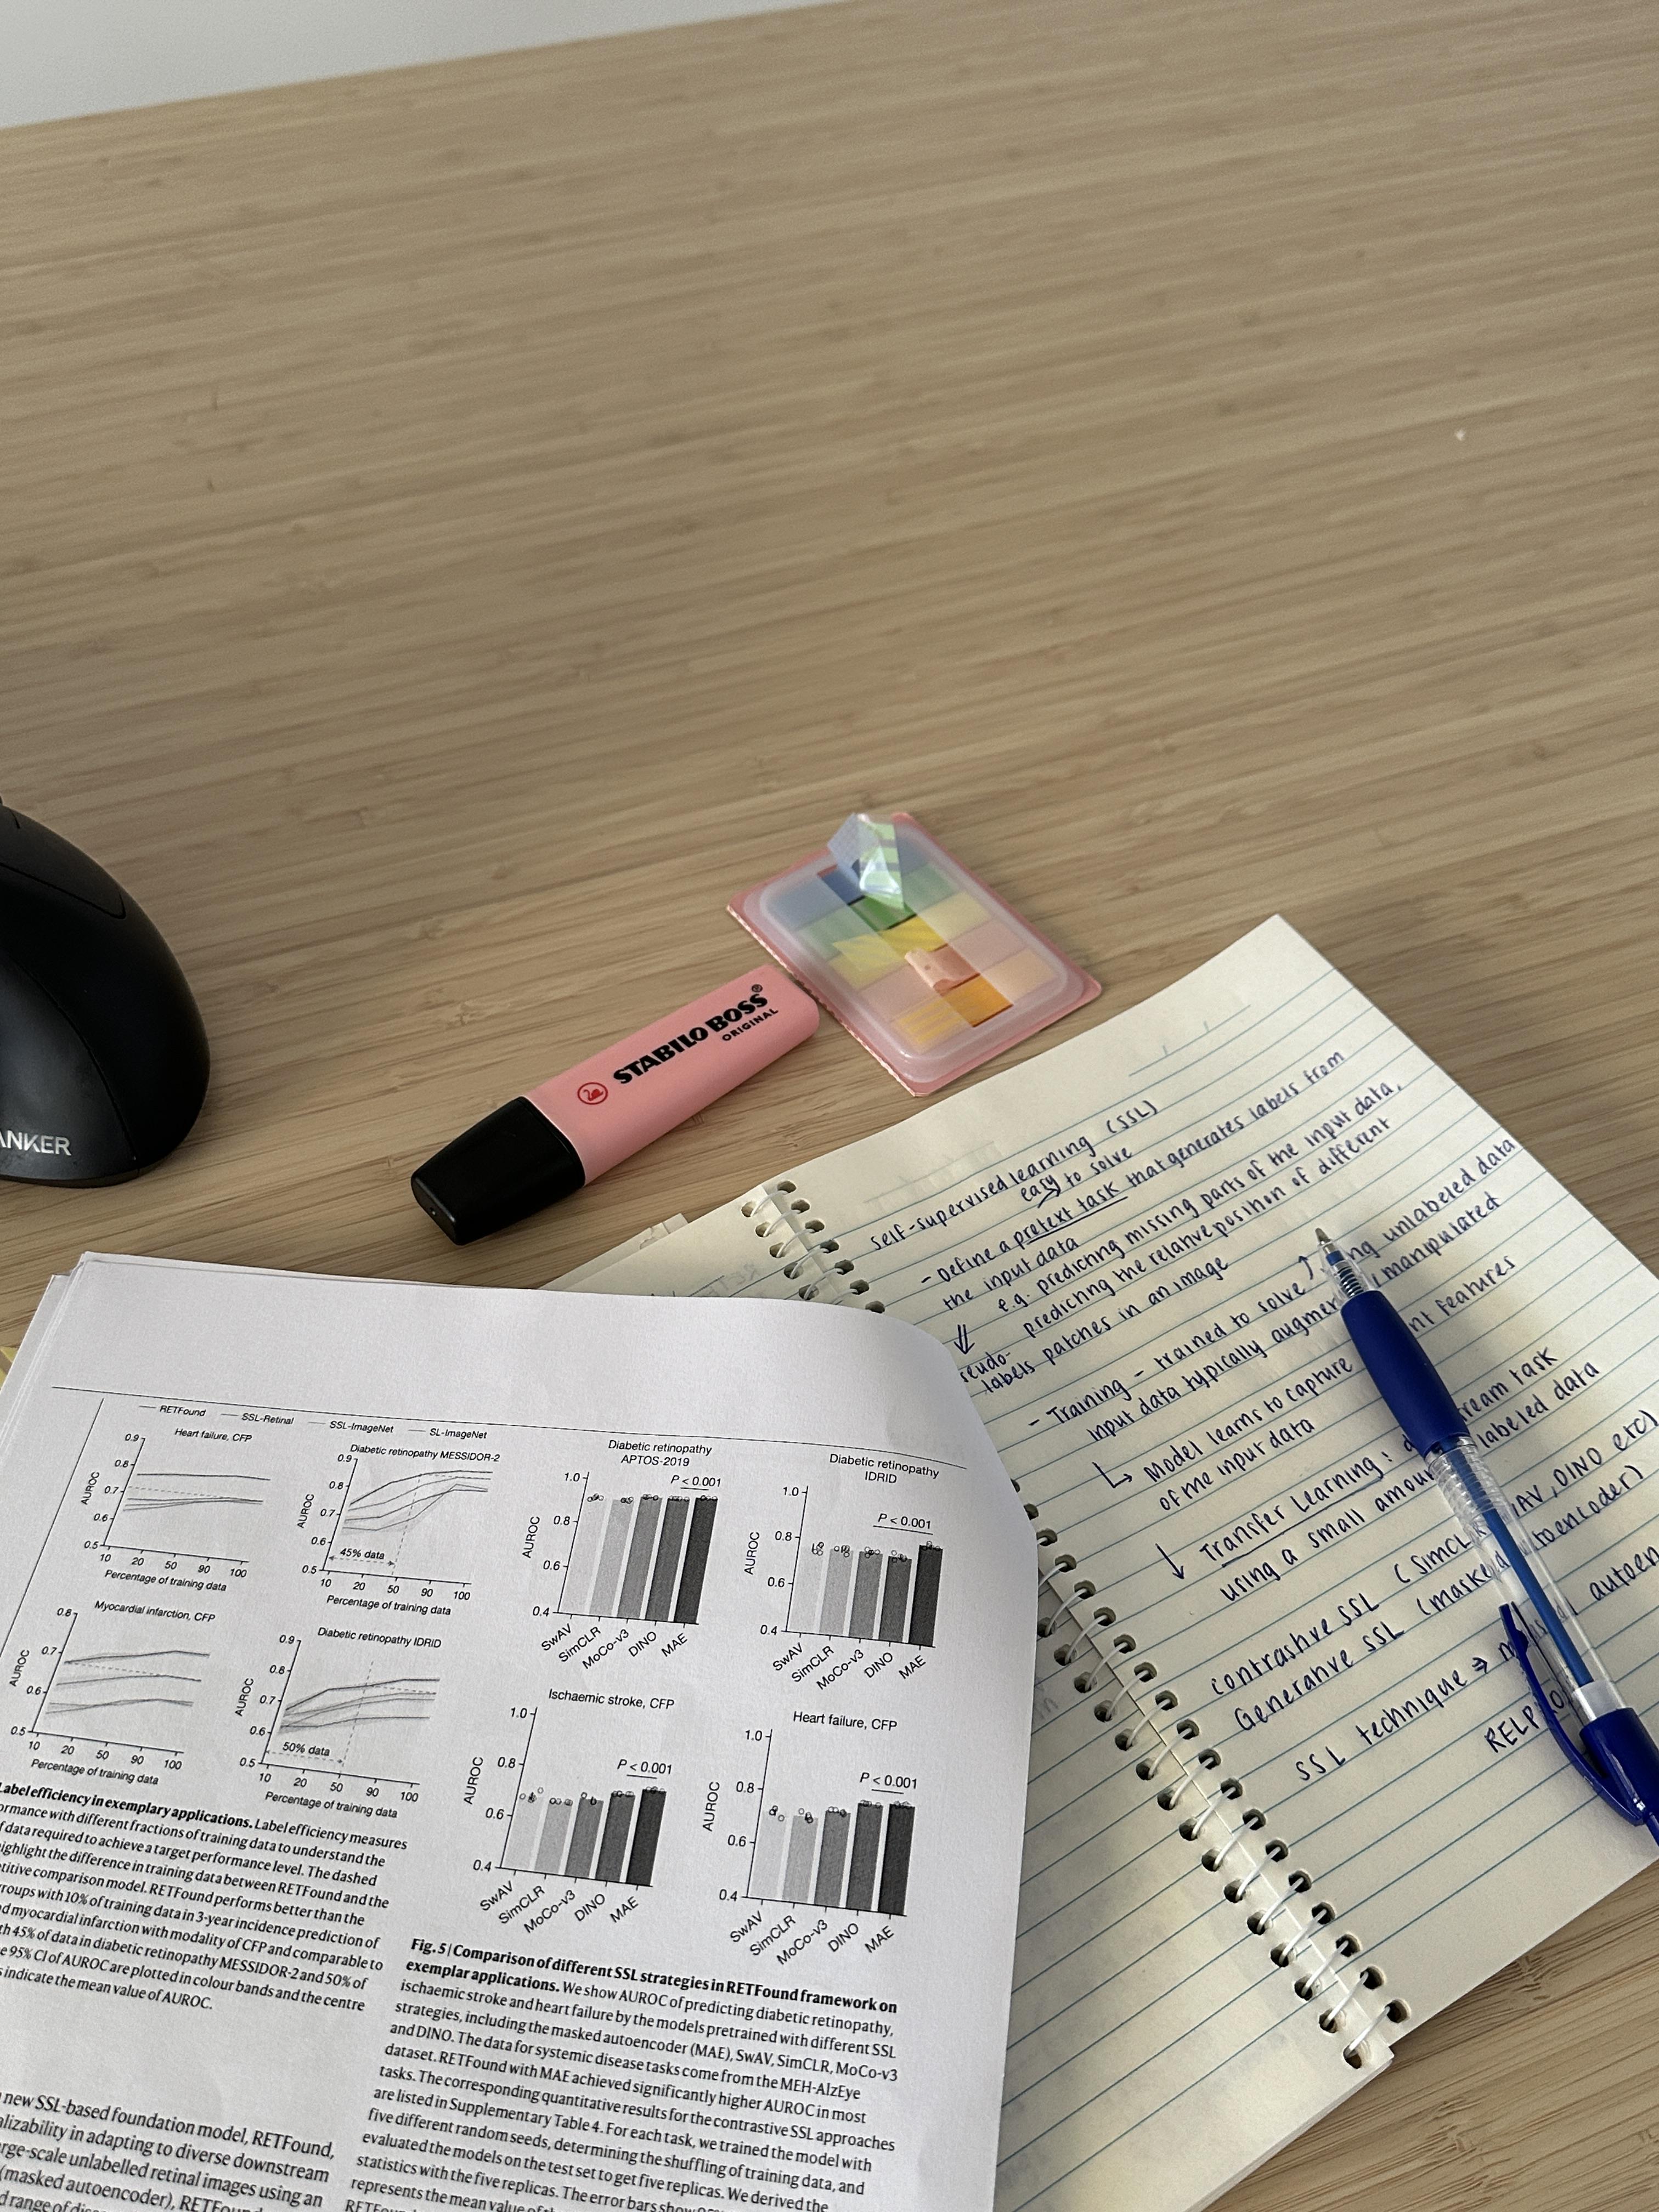 ANKER
STABILO BOSS®
ORIGINAL
Self-supervised learning (SSL)
easy to solve
- Define a pretext task that generates labels from
the input data
e.g. predicting missing parts of the input data,
predicting the relative position of different
patches in an image
labels
- Training - trained to solve unlabeled data
input data typically manipulated
↳ Model learns to capture features
of the input data
↓ Transfer Learning: task
using a small labeled data
contrastive SSL (SimCLR, DINO etc)
Generative SSL (masked autoencoder)
SSL technique ⇒
RETFound
SSL-Retinal
SSL-ImageNet
SL-ImageNet
Heart failure, CFP
AUROC
0.9
0.8
0.7
0.6
0.5
10 20 50 90 100
Percentage of training data
Diabetic retinopathy MESSIDOR-2
AUROC
0.9
0.8
0.7
0.6
0.5
45% data
10 20 50 90 100
Percentage of training data
Myocardial infarction, CFP
AUROC
0.8
0.7
0.6
0.5
10 20 50 90 100
Percentage of training data
Diabetic retinopathy IDRID
AUROC
0.9
0.8
0.7
0.6
0.5
50% data
10 20 50 90 100
Percentage of training data
Label efficiency in exemplary applications. Label efficiency measures
performance with different fractions of training data to understand the
data required to achieve a target performance level. The dashed
highlight the difference in training data between RETFound and the
comparison model. RETFound performs better than the
groups with 10% of training data in 3-year incidence prediction of
myocardial infarction with modality of CFP and comparable to
45% of data in diabetic retinopathy MESSIDOR-2 and 50% of
95% CI of AUROC are plotted in colour bands and the centre
indicate the mean value of AUROC.
new SSL-based foundation model, RETFound,
in adapting to diverse downstream
unlabelled retinal images using an
(masked autoencoder),
range of
Diabetic retinopathy
APTOS-2019
P < 0.001
AUROC
1.0
0.8
0.6
0.4
SwAV
SimCLR
MoCo-v3
DINO
MAE
Diabetic retinopathy
IDRID
P < 0.001
AUROC
1.0
0.8
0.6
0.4
SwAV
SimCLR
MoCo-v3
DINO
MAE
Ischaemic stroke, CFP
P < 0.001
AUROC
1.0
0.8
0.6
0.4
SwAV
SimCLR
MoCo-v3
DINO
MAE
Heart failure, CFP
P < 0.001
AUROC
1.0
0.8
0.6
0.4
SwAV
SimCLR
MoCo-v3
DINO
MAE
Fig. 5 | Comparison of different SSL strategies in RETFound framework on
exemplar applications. We show AUROC of predicting diabetic retinopathy,
ischaemic stroke and heart failure by the models pretrained with different SSL
strategies, including the masked autoencoder (MAE), SwAV, SimCLR, MoCo-v3
and DINO. The data for systemic disease tasks come from the MEH-AlzEye
dataset. RETFound with MAE achieved significantly higher AUROC in most
tasks. The corresponding quantitative results for the contrastive SSL approaches
are listed in Supplementary Table 4. For each task, we trained the model with
five different random seeds, determining the shuffling of training data, and
evaluated the models on the test set to get five replicas. We derived the
statistics with the five replicas. The error bars show
represents the mean value of